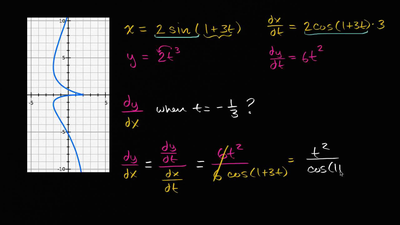 10
5
-5
5
-5
-10
x = 2 sin(1+3t)
dx/dt = 2cos(1+3t)·3
y = 2t³
dy/dt = 6t²
dy/dx when t = -1/3 ?
dy/dx = (dy/dt)/(dx/dt) = 6t²/(6 cos(1+3t)) = t²/(cos(1